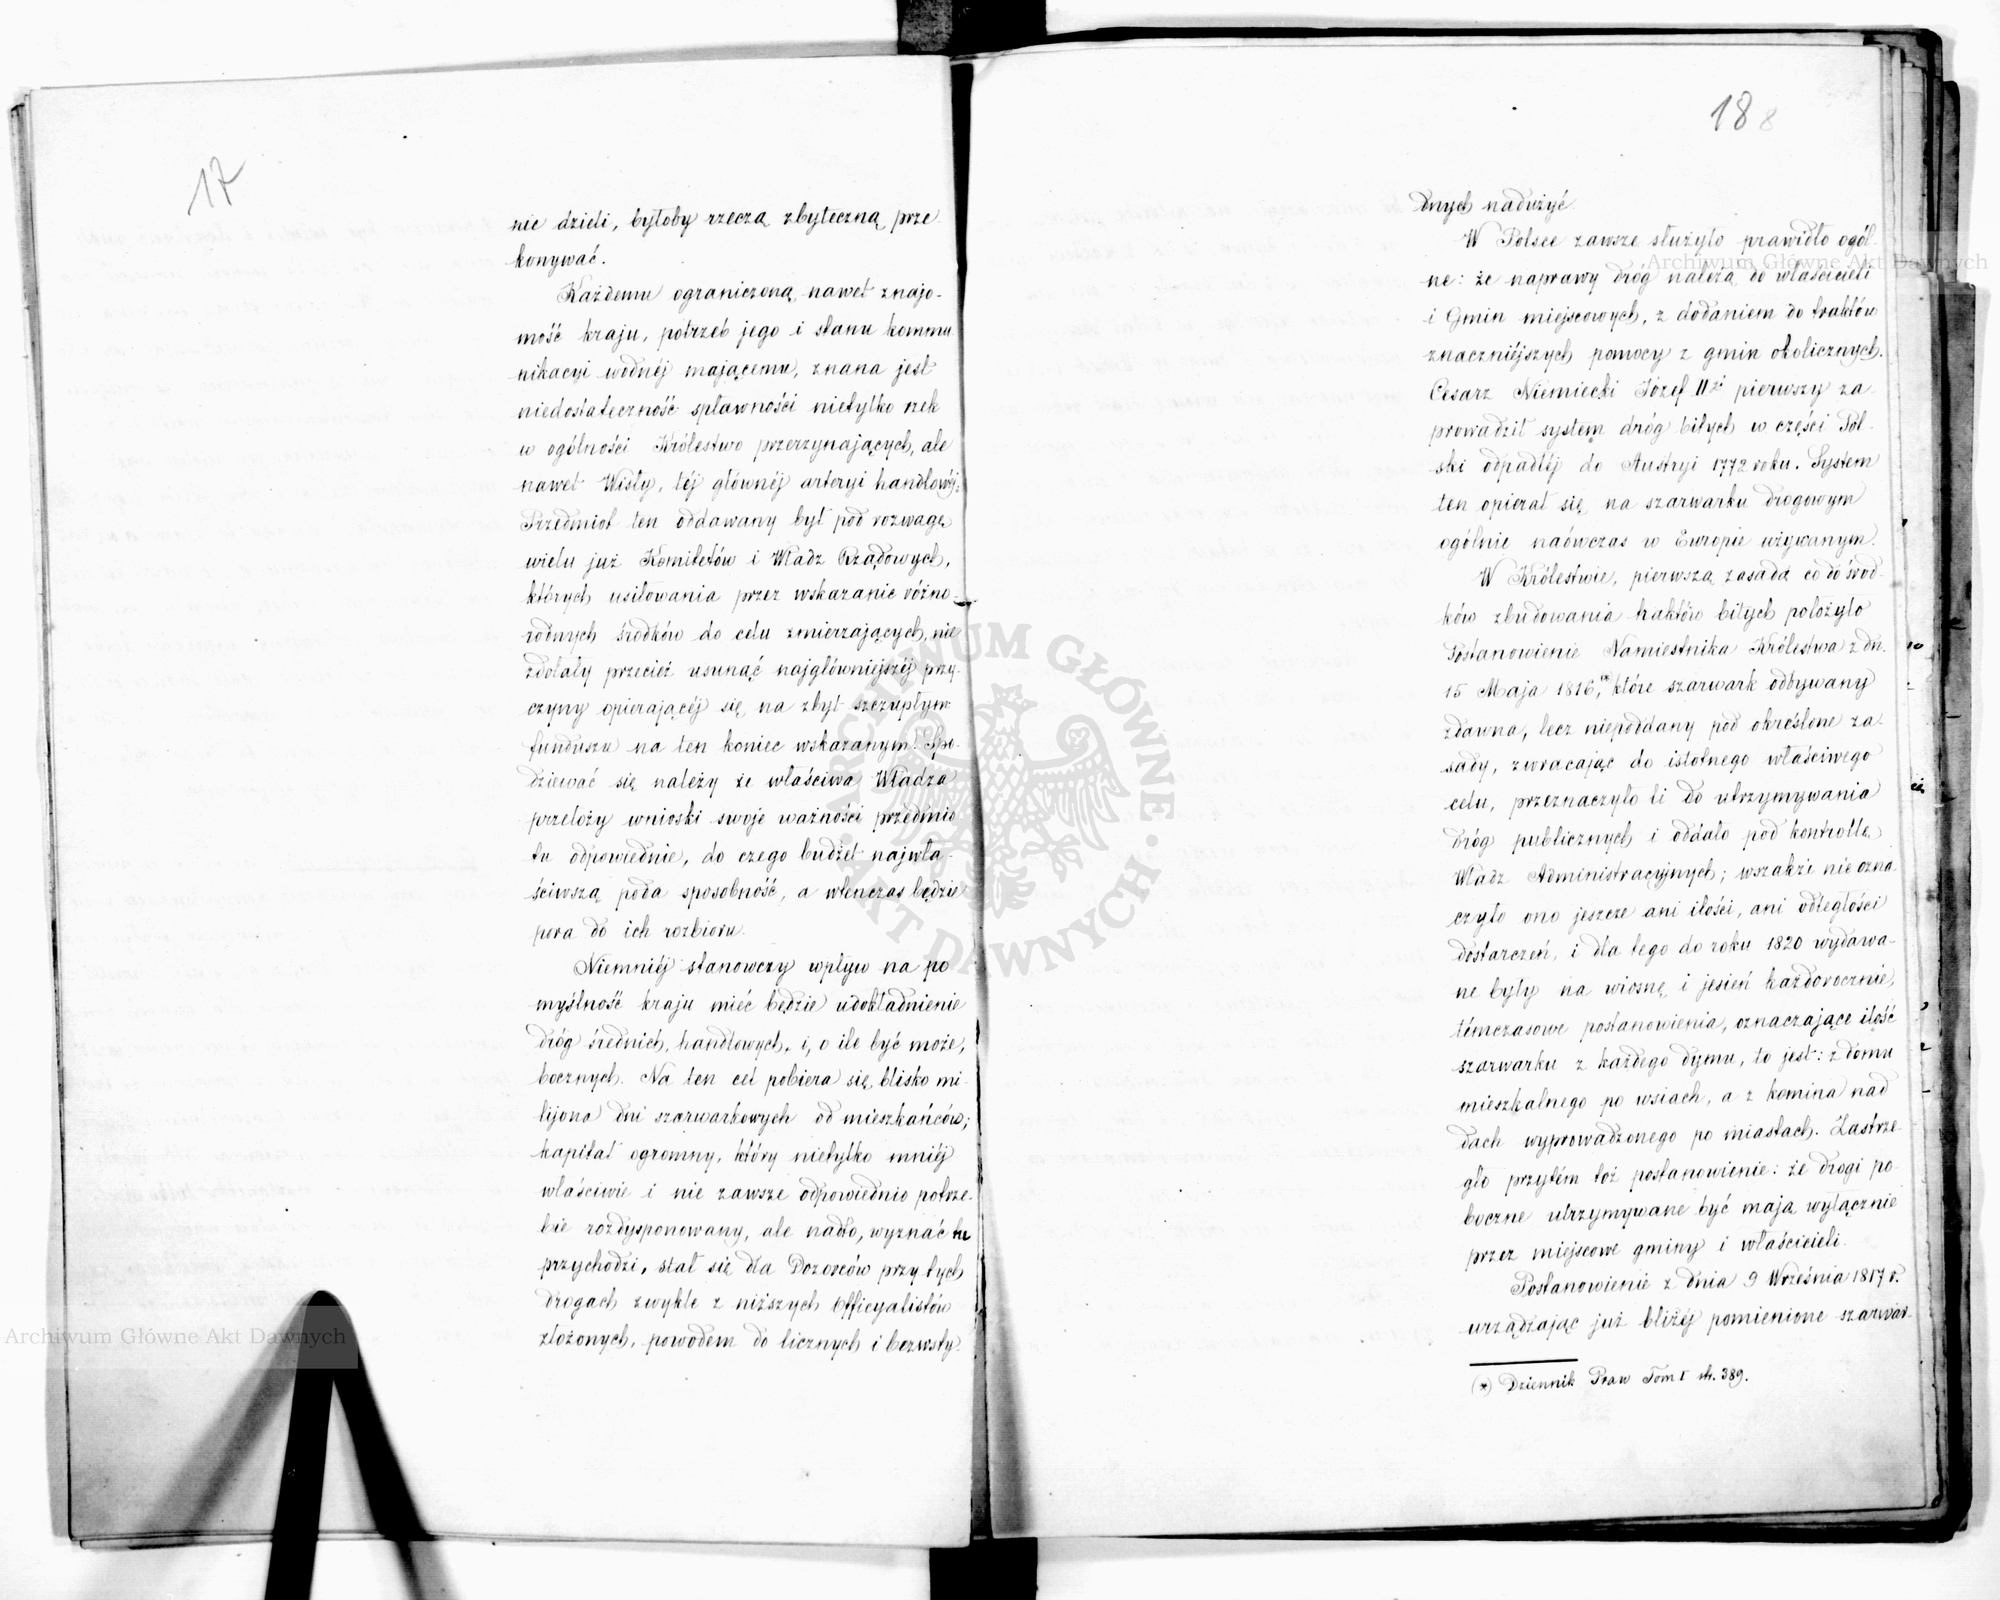 17
nie dzieli, byłoby rzeczą zbyteczną prze
konywać.
Każdemu ograniczoną nawet znajo-
mość kraju, potrzeb jego i stanu kommu
nikacyi wodnéj mającemu, znana jest
niedostateczność spławności nietylko rzek
w ogólności Królestwo przerzynających, ale
nawet Wisły, téj głównéj arteryi handlowéj.
Przedmiot ten oddawany był pod rozwagę
wielu już Komitetów i Władz Rządowych,
których usiłowania przez wskazanie różno-
rodnych środków do celu zmierzających, nie
zdołały przecież usunąć najgłówniejszéj przy-
czyny opierającéj się na zbyt szczupłym
funduszu na ten koniec wskazanym. Spo-
dziewać się należy że właściwa Władza
przełoży wnioski swoje ważności przedmio
tu odpowiednie, do czego budżet najwła-
ściwszą poda sposobność, a wtenczas będzie
pora do ich rozbioru.
Niemniéj stanowczy wpływ na po
myślność kraju mieć będzie udokładnienie
dróg średnich, handlowych, i, o ile być może,
bocznych. Na ten cel pobiera się blisko mi-
lijona dni szarwarkowych od mieszkańców;
kapitał ogromny, który nietylko mniéj
właściwie i nie zawsze odpowiednio potrze-
bie rozdysponowany, ale nadto, wyznać tu
przychodzi, stał się dla Dozorców przy tych
drogach zwykle z niższych Officyalistów
złożonych, powodem do licznych i bezwsty
18 8
dnych nadużyć.
W Polsce zawsze służyło prawidło ogól-
ne: że naprawy dróg należą do właścicieli
i Gmin miejscowych, z dodaniem do traktów
znaczniéjszych pomocy z gmin okolicznych.
Cesarz Niemiecki Józef IIgi pierwszy za-
prowadził system dróg bitych w części Pol-
ski odpadłéj do Austryi 1772 roku. System
ten opierał się na szarwarku drogowym
ogólnie naówczas w Europie używanym.
W Królestwie, pierwszą zasadą co do środ-
ków zbudowania traktów bitych położyło
Postanowienie Namiestnika Królestwa z dn.
15 Maja 1816, (*) które szarwark odbywany
zdawna, lecz niepoddany pod określone za-
sady, zwracając do istotnego właściwego
celu, przeznaczyło li do utrzymywania
dróg publicznych i oddało pod kontrollę
Władz Administracyjnych; wszakże nie ozna
czyło ono jeszcze ani ilości, ani odległości
dostarczeń, i dla tego do roku 1820 wydawa-
ne były na wiosnę i jesień każdorocznie,
témczasowe postanowienia, oznaczające ilość
szarwarku z każdego dymu, to jest: z domu
mieszkalnego po wsiach, a z komina nad
dach wyprowadzonego po miastach. Zastrze-
gło przytém toż postanowienie: że drogi po-
boczne utrzymywane być mają wyłącznie
przez miejscowe gminy i właścicieli.
Postanowienie z dnia 9 Września 1817 r.
urządzając już bliżéj pomienione szarwar-
(*) Dziennik Praw Tom I str. 389.
Archiwum Główne Akt Dawnych
Archiwum Główne Akt Dawnych
ARCHIWUM GŁÓWNE
AKT DAWNYCH